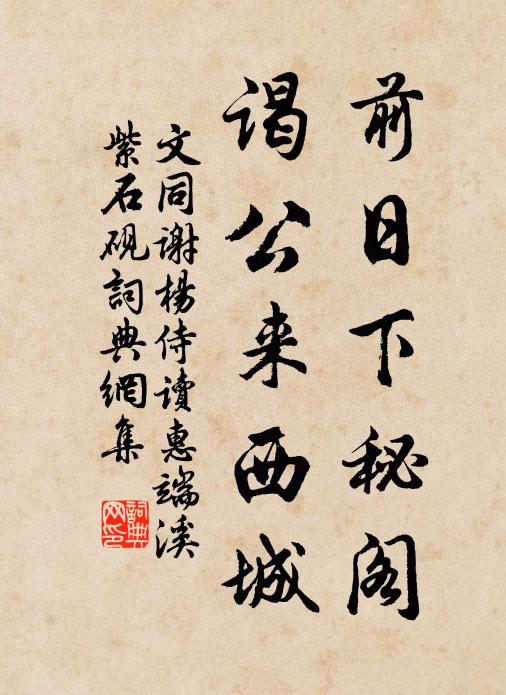 前日下秘阁
谒公来西城
文同謝楊侍讀惠端溪
紫石硯詞典網集
詞典网印